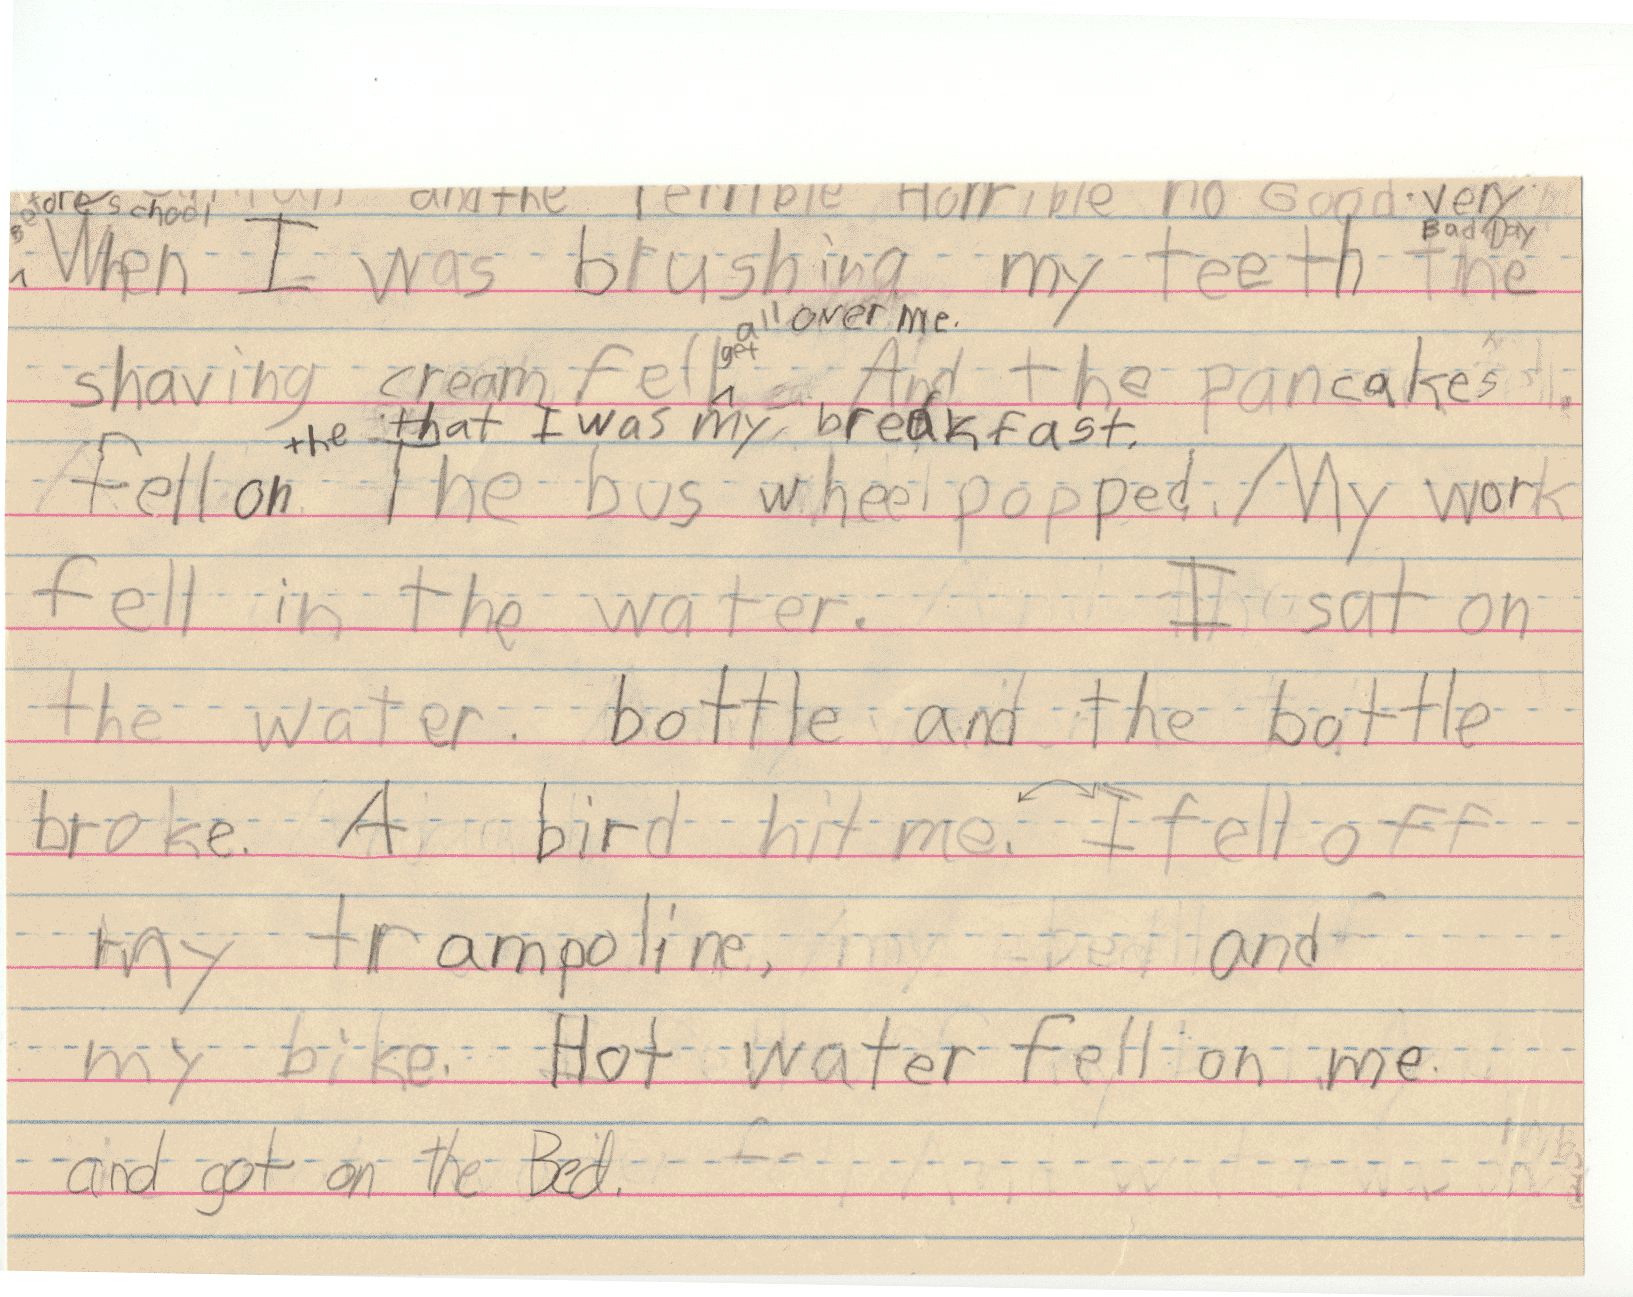 and the Terrible Horrible no Good very
Bad Day
Before school
When I was brushing my teeth the
all over me.
get
shaving cream fell And the pancakes
the that I was my breakfast.
fell on The bus wheel popped. / My work
fell in the water. I sat on
the water. bottle and the bottle
broke. A bird hit me. I fell off
my trampoline, and
my bike. Hot water fell on me.
and got on the Bed.